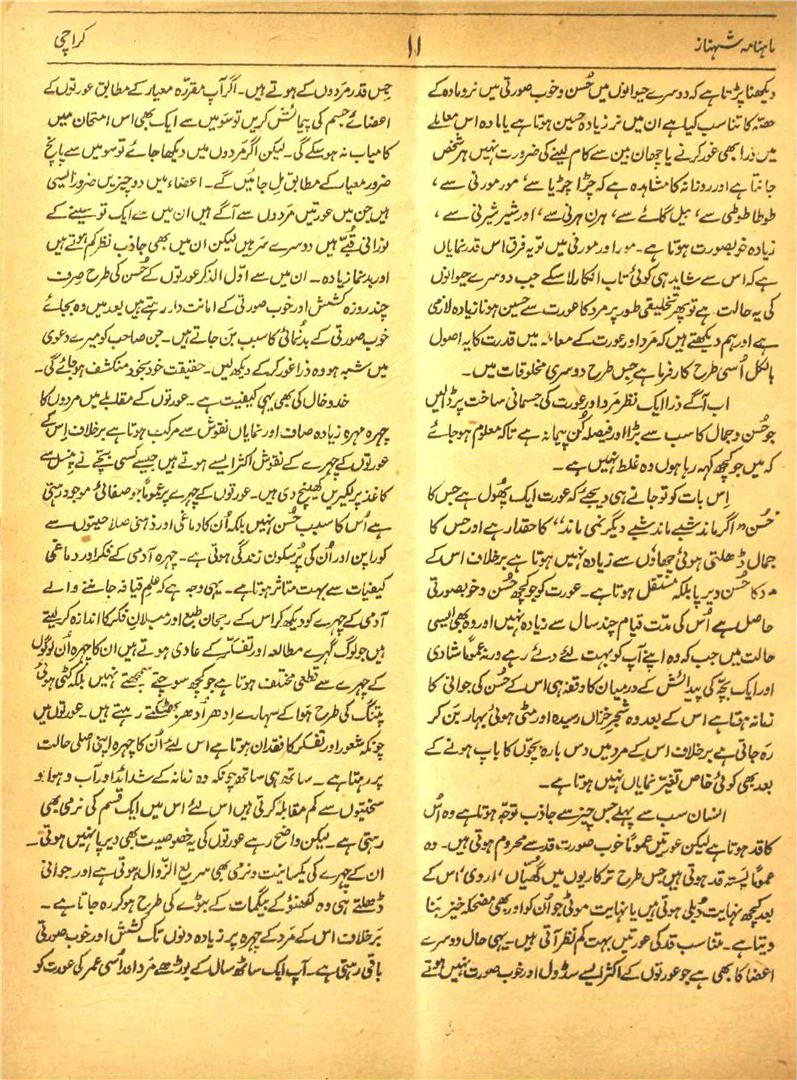 ماہنامہ شہناز
۱۱
کراچی
دیکھنا پڑتا ہے کہ دوسرے حیوانوں میں حُسن و خوب صورتی میں نر و مادہ کے
حصّہ کا تناسب کیا ہے ان میں نر زیادہ حسین ہوتا ہے یا مادہ اس معاملے
میں ذرا بھی غور کرنے یا چھان بین سے کام لینے کی ضرورت نہیں ہر شخص
جانتا ہے اور روزانہ کا مشاہدہ ہے کہ چڑا چڑیا سے، مور مورنی سے،
طوطا طوطی سے، بیل گائے سے، ہرن ہرنی سے، اور شیر شیرنی سے،
زیادہ خوبصورت ہوتا ہے۔ مور اور مورنی میں تو یہ فرق اس قدر نمایاں
ہے کہ اس سے شاید ہی کوئی تاب انکار لا سکے جب دوسرے حیوانوں
کی یہ حالت ہے تو پھر تخلیقی طور پر مرد کا عورت سے حسین ہونا زیادہ لازمی
ہے اور ہم دیکھتے ہیں کہ مرد اور عورت کے معاملہ میں قدرت کا یہ اصول
بالکل اُسی طرح کارفرما ہے جس طرح دوسری مخلوقات میں۔
اب آگے ذرا ایک نظر مرد اور عورت کی جسمانی ساخت پر ڈالیں
جو حُسن و جمال کا سب سے بڑا اور فیصلہ کُن پیمانہ ہے تاکہ معلوم ہو جائے
کہ میں جو کچھ کہہ رہا ہوں وہ غلط نہیں ہے۔
اِس بات کو تو جانے ہی دیجئے کہ عورت ایک پھُول ہے جس کا
حُسن "اگر ماند شبے ماند شبے دیگر نمی ماند" کا حقدار ہے اور جس کا
جمال ڈھلتی ہوئی چھاؤں سے زیادہ نہیں ہوتا ہے برخلاف اس کے
د کا حُسن دیرپا بلکہ مستقل ہوتا ہے۔ عورت کو جو کچھ حُسن و خوبصورتی
حاصل ہے اُس کی مدّت قیام چند سال سے زیادہ نہیں اور وہ بھی ایسی
حالت میں جب کہ وہ اپنے آپ کو بہت لئے دئے رہے ورنہ عموماً شادی
اور ایک بچّہ کی پیدائش کے درمیان کا وقفہ ہی اس کے حُسن کی جوانی کا
زمانہ ہوتا ہے اس کے بعد وہ شجرِ خزاں رسیدہ اور مٹی ہوئی بہار بن کر
رہ جاتی ہے برخلاف اس کے مرد میں دس بارہ بچّوں کا باپ ہونے کے
بعد بھی کوئی خاص تغیّر نمایاں نہیں ہوتا ہے۔
انسان سب سے پہلے جس چیز سے جاذب توجّہ ہوتا ہے وہ اُس
کا قد ہوتا ہے لیکن عورتیں عموماً خوب صورت قد سے محروم ہوتی ہیں۔ وہ
عموماً پستہ قد ہوتی ہیں جس طرح ترکاریوں میں گھُیّاں، 'اروی' اس کے
بعد کچھ نہایت دُبلی ہوتی ہیں یا نہایت موٹی جو اُن کو اور بھی مضحکہ خیز بنا
دیتا ہے۔ متناسب قد کی عورتیں بہت کم نظر آتی ہیں۔ یہی حال دوسرے
اعضا کا بھی ہے جو عورتوں کے اکثر ایسے سڈول اور خوب صورت نہیں ہوتے
جِس قدر مَردوں کے ہوتے ہیں۔ اگر آپ مقررّہ معیار کے مطابق عورتوں کے
اعضائے جسم کی پیمائش کریں تو سَو میں سے ایک بھی اس امتحان میں
کامیاب نہ ہو سکے گی۔ لیکن اگر مَردوں میں دیکھا جائے تو سو میں سے پانچ
ضرور معیار کے مطابق مِل جائیں گے۔ اعضاء میں دو چیزیں ضرور ایسی
ہیں جن میں عورتیں مَردوں سے آگے ہیں ان میں سے ایک تو سینے کے
نورانی قُبّے ہیں دوسرے سَر ہیں لیکن ان میں بھی جاذب نظر کم ہوتے ہیں
اور بدنما زیادہ۔ ان میں سے اوّل الذکر عورتوں کے حُسن کی طرح صِرف
چند روزہ کشش اور خوب صورتی کے امانت دار رہتے ہیں بعد میں وہ بجائے
خوب صورتی کے بدنُمائی کا سبب بَن جاتے ہیں۔ جن صاحب کو میرے دعوی
میں شبہ ہو وہ ذرا غور کر کے دیکھ لیں۔ حقیقت خود بخود منکشف ہو جائے گی۔
خدو خال کی بھی یہی کیفیت ہے۔ عورتوں کے مقابلے میں مردوں کا
چہرہ مہرہ زیادہ صاف اور نمایاں نقوش سے مرکّب ہوتا ہے برخلاف اِس کے
عورتوں کے چہرے کے نقوش اکثر ایسے ہوتے ہیں جیسے کسی بچّے نے پنسل سے
کاغذ پر لکیریں کھینچ دی ہیں۔ عورتوں کے چہرے پر عموماً جو صفائی موجود رہتی
ہے اُس کا سبب حُسن نہیں بلکہ اُن کا دماغی اور ذہنی صلاحیتوں سے
کوراپن اور اُن کی پُرسکون زندگی ہوتی ہے۔ چہرہ آدمی کے فکر اور دماغی
کیفیات سے بہت متاثر ہوتا ہے۔ یہی وجہ ہے کہ علمِ قیافہ جاننے والے
آدمی کے چہرے کو دیکھ کر اس کے رجحان طبع اور میلانِ فکر کا اندازہ کر لیتے
ہیں جو لوگ گہرے مطالعہ اور تفکّر کے عادی ہوتے ہیں ان کا چہرہ اُن لوگوں
کے چہرے سے قطعی مختلف ہوتا ہے جو کچھ سوچتے سمجھتے نہیں بلکہ کٹی ہوئی
پتنگ کی طرح ہوا کے سہارے اِدھر اُدھر بھٹکتے رہتے ہیں۔ عورتوں میں
چونکہ شعور اور تفکر کا فقدان ہوتا ہے اس لئے اُن کا چہرہ اپنی اصلی حالت
پر رہتا ہے۔ ساتھ ہی ساتھ چونکہ وہ زمانہ کے شدائد اور آب و ہوا کو
سختیوں سے کم مقابلہ کرتی ہیں اس لئے اس میں ایک قسم کی نرمی بھی
رہتی ہے۔ لیکن واضح رہے عورتوں کی یہ خصوصیت بھی دیرپا نہیں ہوتی۔
ان کے چہرے کی یکسانیت و نرمی بھی سریع الزّوال ہوتی ہے اور جوانی
ڈھلتے ہی وہ لکھنؤ کے بیگمات کے بٹوے کی طرح ہو کر رہ جاتا ہے۔
برخلاف اس کے مَرد کے چہرہ پر زیادہ دنوں تک کشش اور خوب صورتی
باقی رہتی ہے۔ آپ ایک ساٹھ سال کے بوڑھے مَرد اور اُسی عمر کی عورت کو